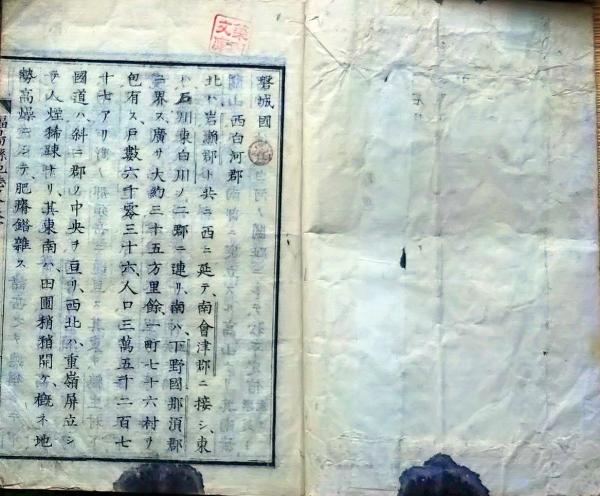 磐城國
西白河郡
北ハ岩瀬郡ト共ニ西ニ延テ、南會津郡ニ接シ、東
ハ石川東白川ノ二郡ニ連リ、南ハ下野國那須郡
ニ界ス、廣サ大約三十五方里餘、一町七十六村ヲ
包有ス、戸數六千零三十六、人口三萬五千二百七
十七アリ
國道ハ斜ニ郡ノ中央ヲ亘リ、西北ハ重嶺屏立シ
テ人煙稀踈ナリ、其東南ハ、田圃稍稍開ケ、概ネ地
勢高燥ニシテ、肥瘠錯雜ス